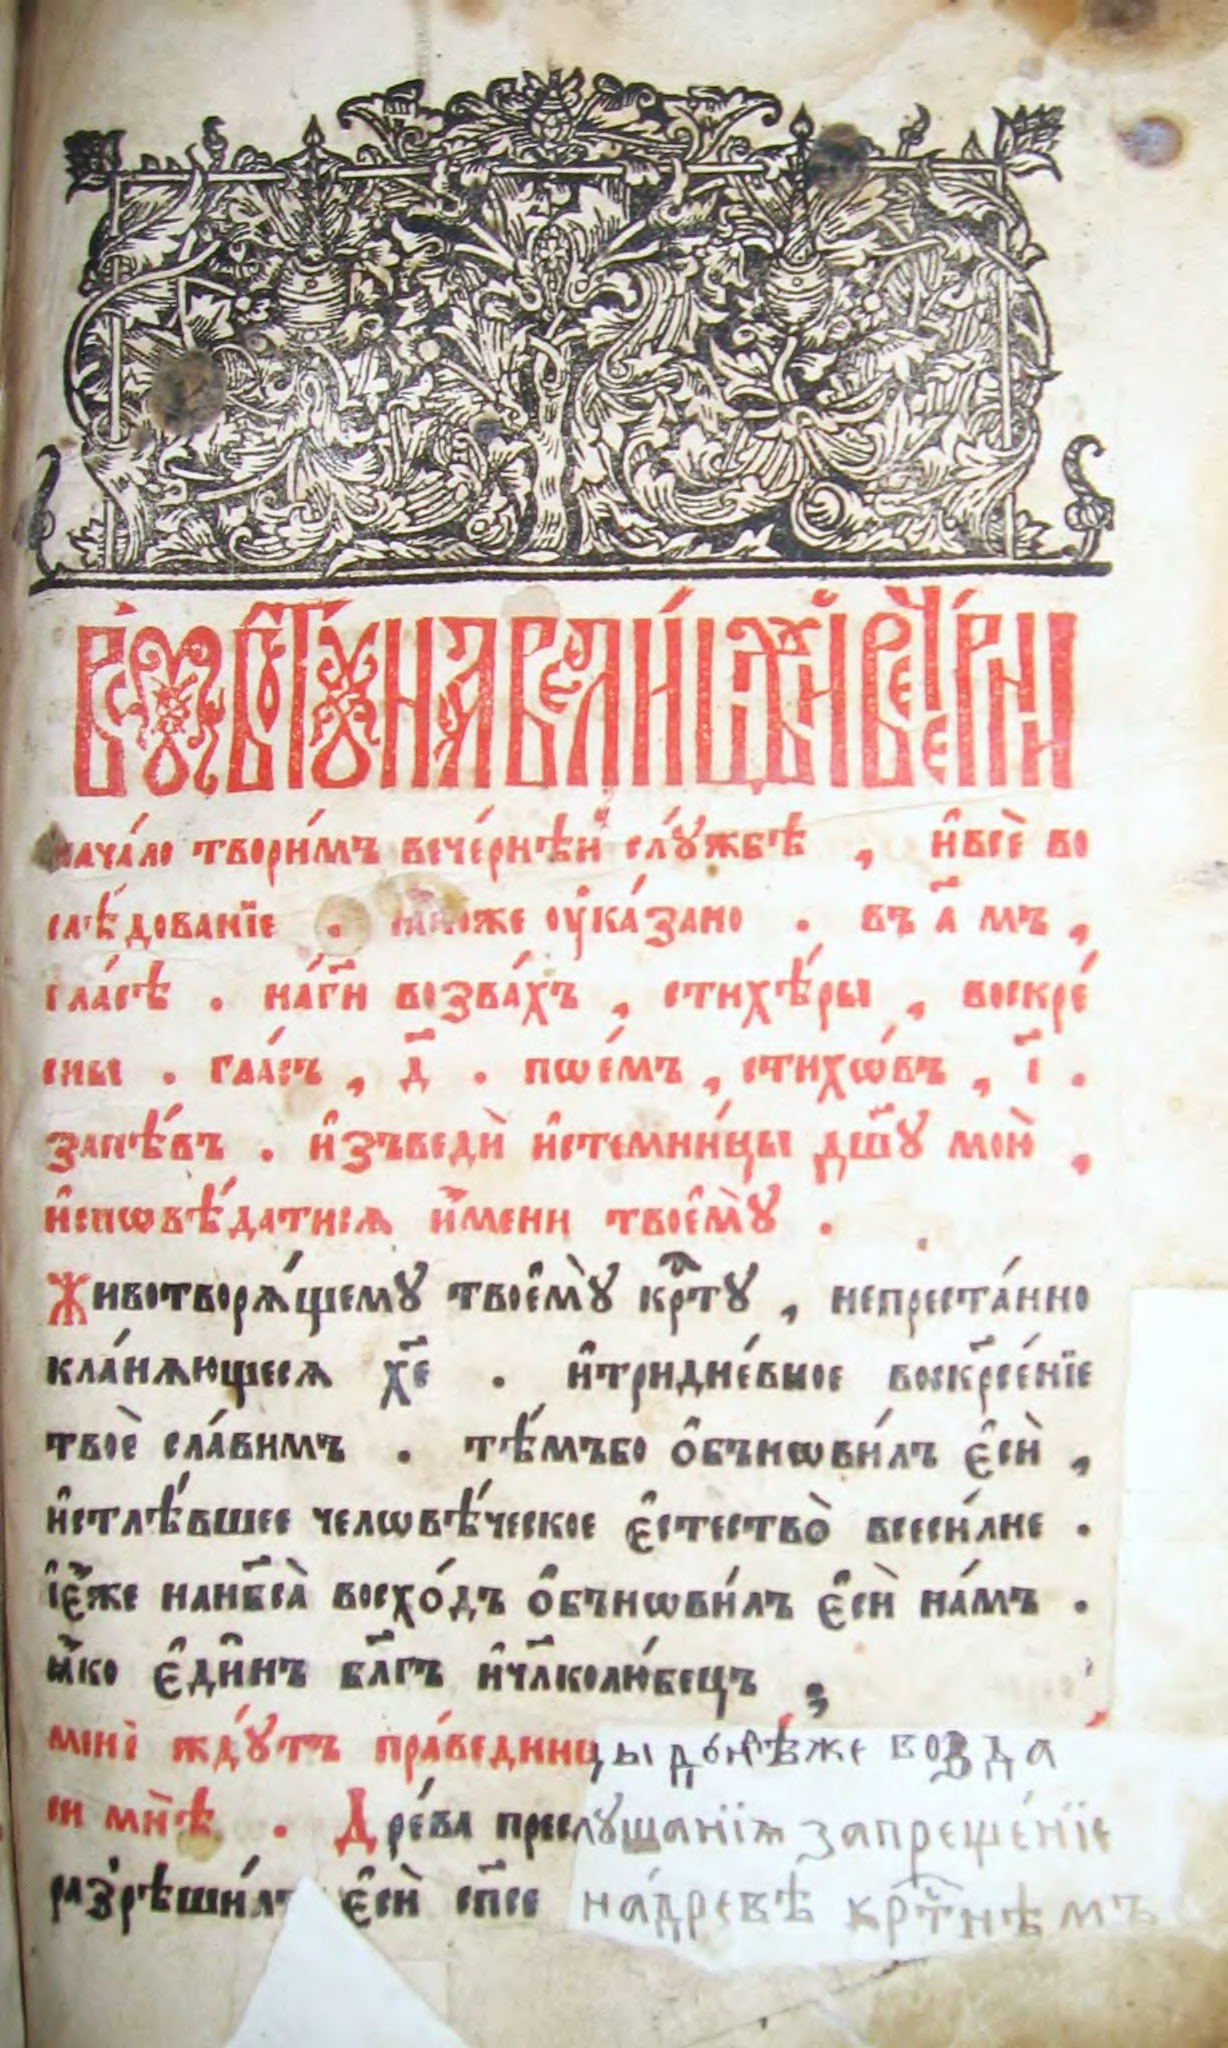 В̾ сꙋбо́тꙋ на вели́цѣй вече́рни
Нача́ло твори́мъ вече́рнѣй слꙋ́жбѣ , и҆всѐ во
слѣ́дованїе . ꙗ҆́коже оу҆ка́зано . въ а҃ мъ ,
гла́сѣ . на́гд҇и возва́хъ , стихѣ́ры , воскре́
сны . гла́съ , д҃ . пое́мъ , стихѡ́въ , і҃ .
запѣ́въ . и҆зъведѝ и҆стемни́цы дш҃ꙋ мою̀ ,
и҆сповѣ́датисѧ и҆́мени твоемꙋ̀ .
Животворѧ́щемꙋ твоемꙋ̀ крⷭ҇тꙋ , непреста́нно
кла́нѧющесѧ хе҃ . и҆тридне́вное воскрⷭ҇е́нїе
твоѐ сла́вимъ . тѣ́мъбо ѻ҆бънови́лъ є҆сѝ ,
и҆стлѣ́вшее человѣ́ческое є҆стество̀ всеси́лне .
і҆е҆́же нанб҃са̀ восхо́дъ ѻ҆бънови́лъ є҆сѝ на́мъ .
ꙗ҆́ко є҆ди́нъ бл҃гъ и҆чл҃колю́бецъ ,
менѐ ждꙋ́тъ пра́ведницы до́нѣже возда
си мнѣ̀ . Дре́ва преслꙋшанїѧ запреще́нїе
разрѣши́лъ є҆сѝ сп҃се на́древѣ крⷭ҇тнѣмъ